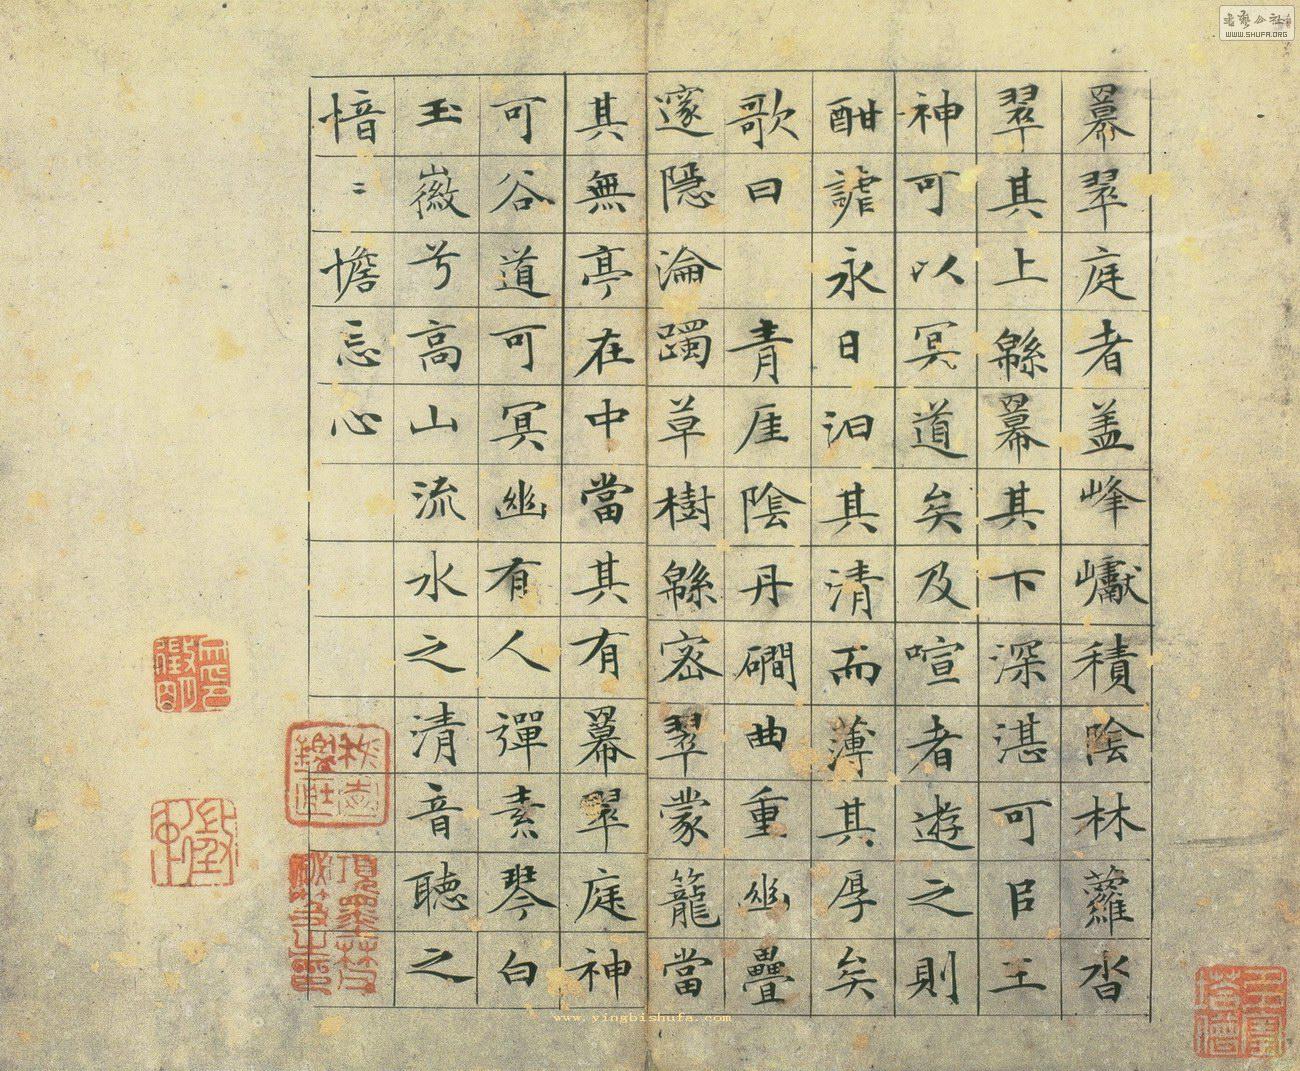 羃翠庭者蓋峰巘積陰林蘿沓
翠其上緜羃其下深湛可㠯王
神可以冥道矣及喧者遊之則
酣謔永日汩其清而薄其厚矣
歌曰　青厓陰丹磵曲重幽疊
邃隱淪躅草樹緜密翠蒙籠當
其無亭在中當其有羃翠庭神
可谷道可冥幽有人彈素琴白
玉徽兮高山流水之清音聽之
愔〻憺忘心
WWW.SHUFA.ORG
www.yingbishufa.com